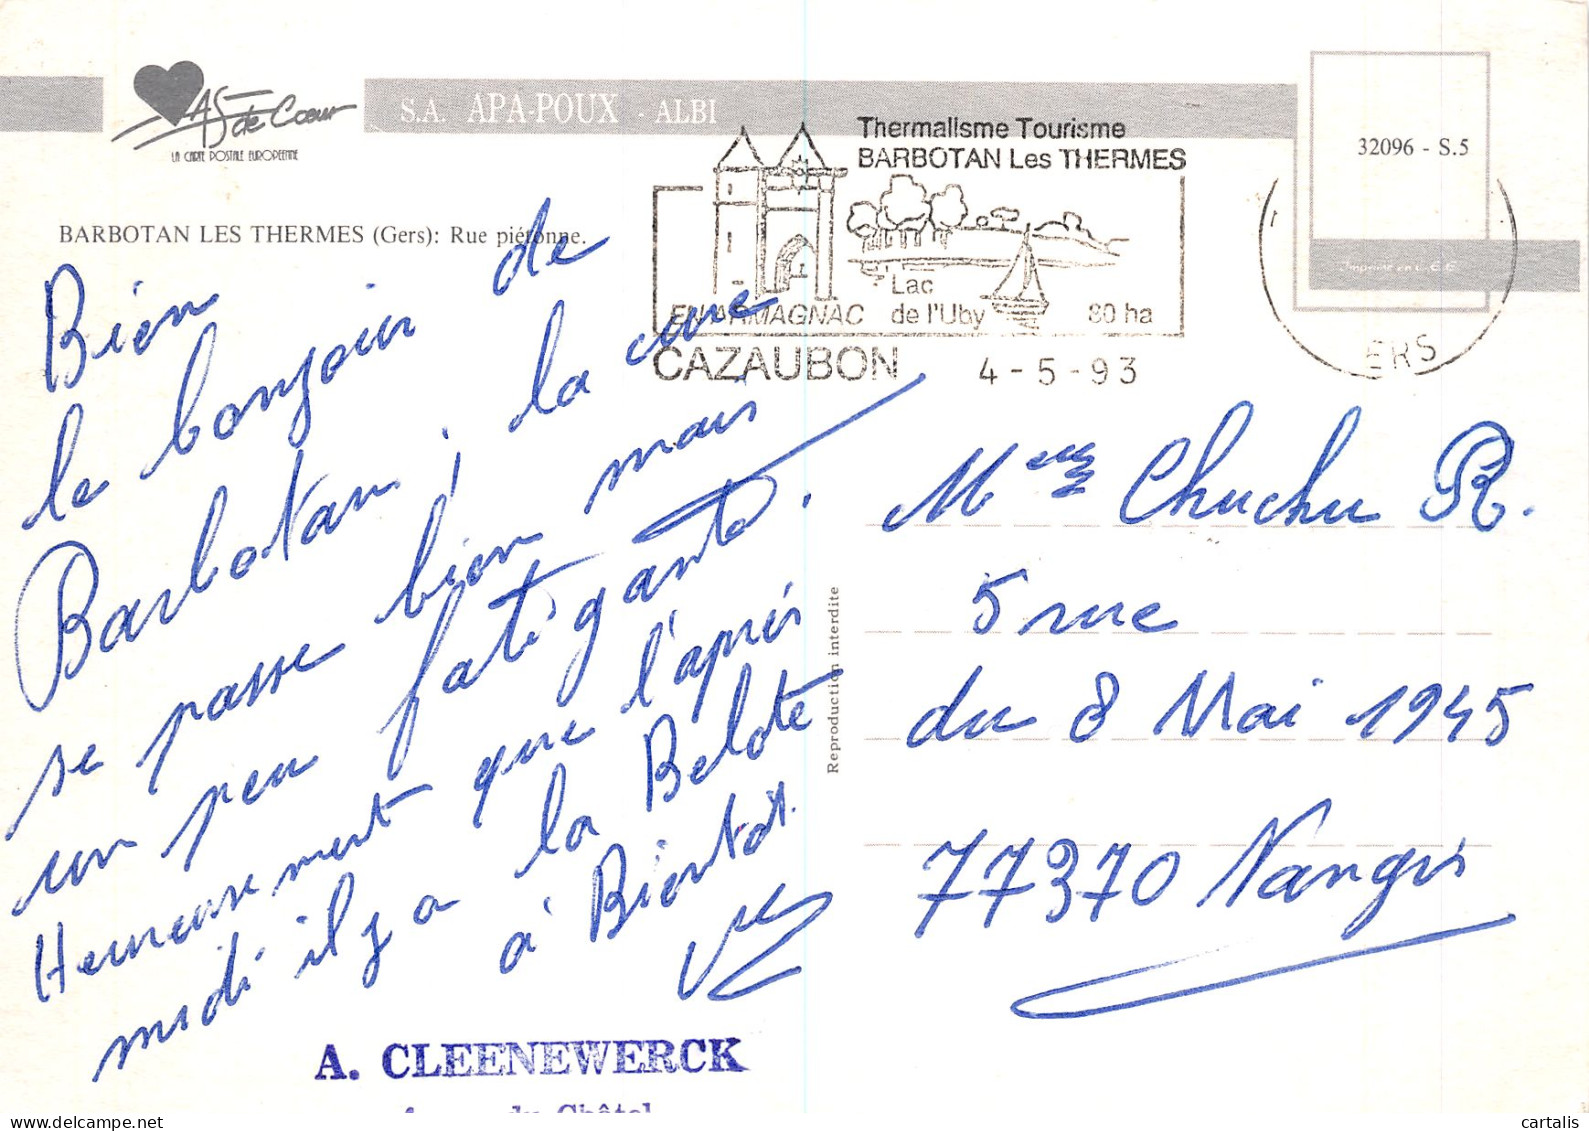 AS de Coeur
LA CARTE POSTALE EUROPEENNE
S.A. APA-POUX - ALBI
BARBOTAN LES THERMES (Gers): Rue piétonne.
Thermalisme Tourisme
BARBOTAN Les THERMES
EN ARMAGNAC
Lac
de l'Uby
80 ha
CAZAUBON
4-5-93
ERS
32096 - S.5
Bien
le bonjour de
Barbotan, la cure
se passe bien mais
un peu fatigante.
Heureusement que l'après
midi il y a la Belote
à Bientôt.
Reproduction interdite
Mme Chuchu R.
5 rue
du 8 Mai 1945
77370 Nangis
A. CLEENEWERCK
du Châtel
cartalis